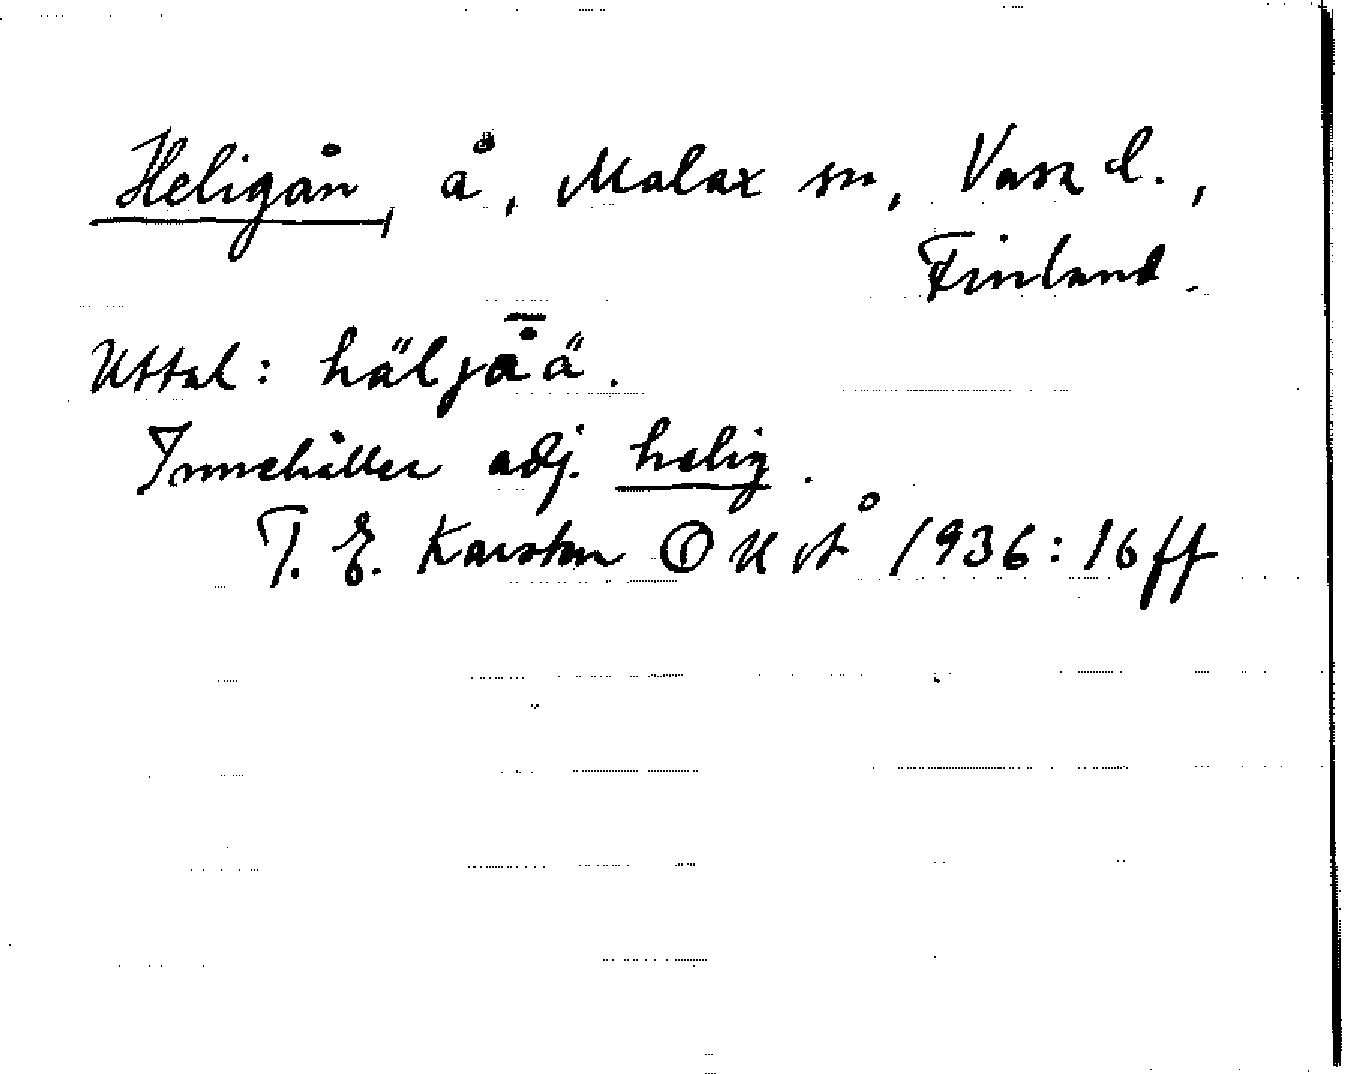 Heligån, å, Malax sn, Vasa l.,
Finland.
Uttal: häljå̄ä.
Innehåller adj. helig.
T. E. Karsten 1936: 16 ff